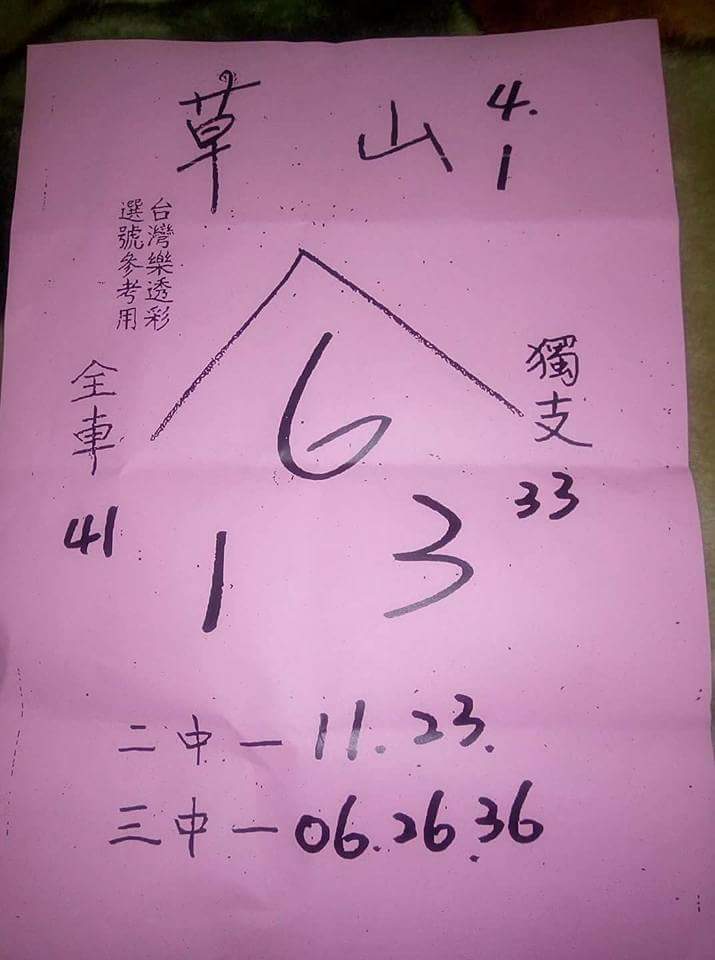 草山 4.
1
台灣樂透彩
選號參考用
全車
獨支
6
41
33
1 3
二中一11.23.
三中一06.26.36